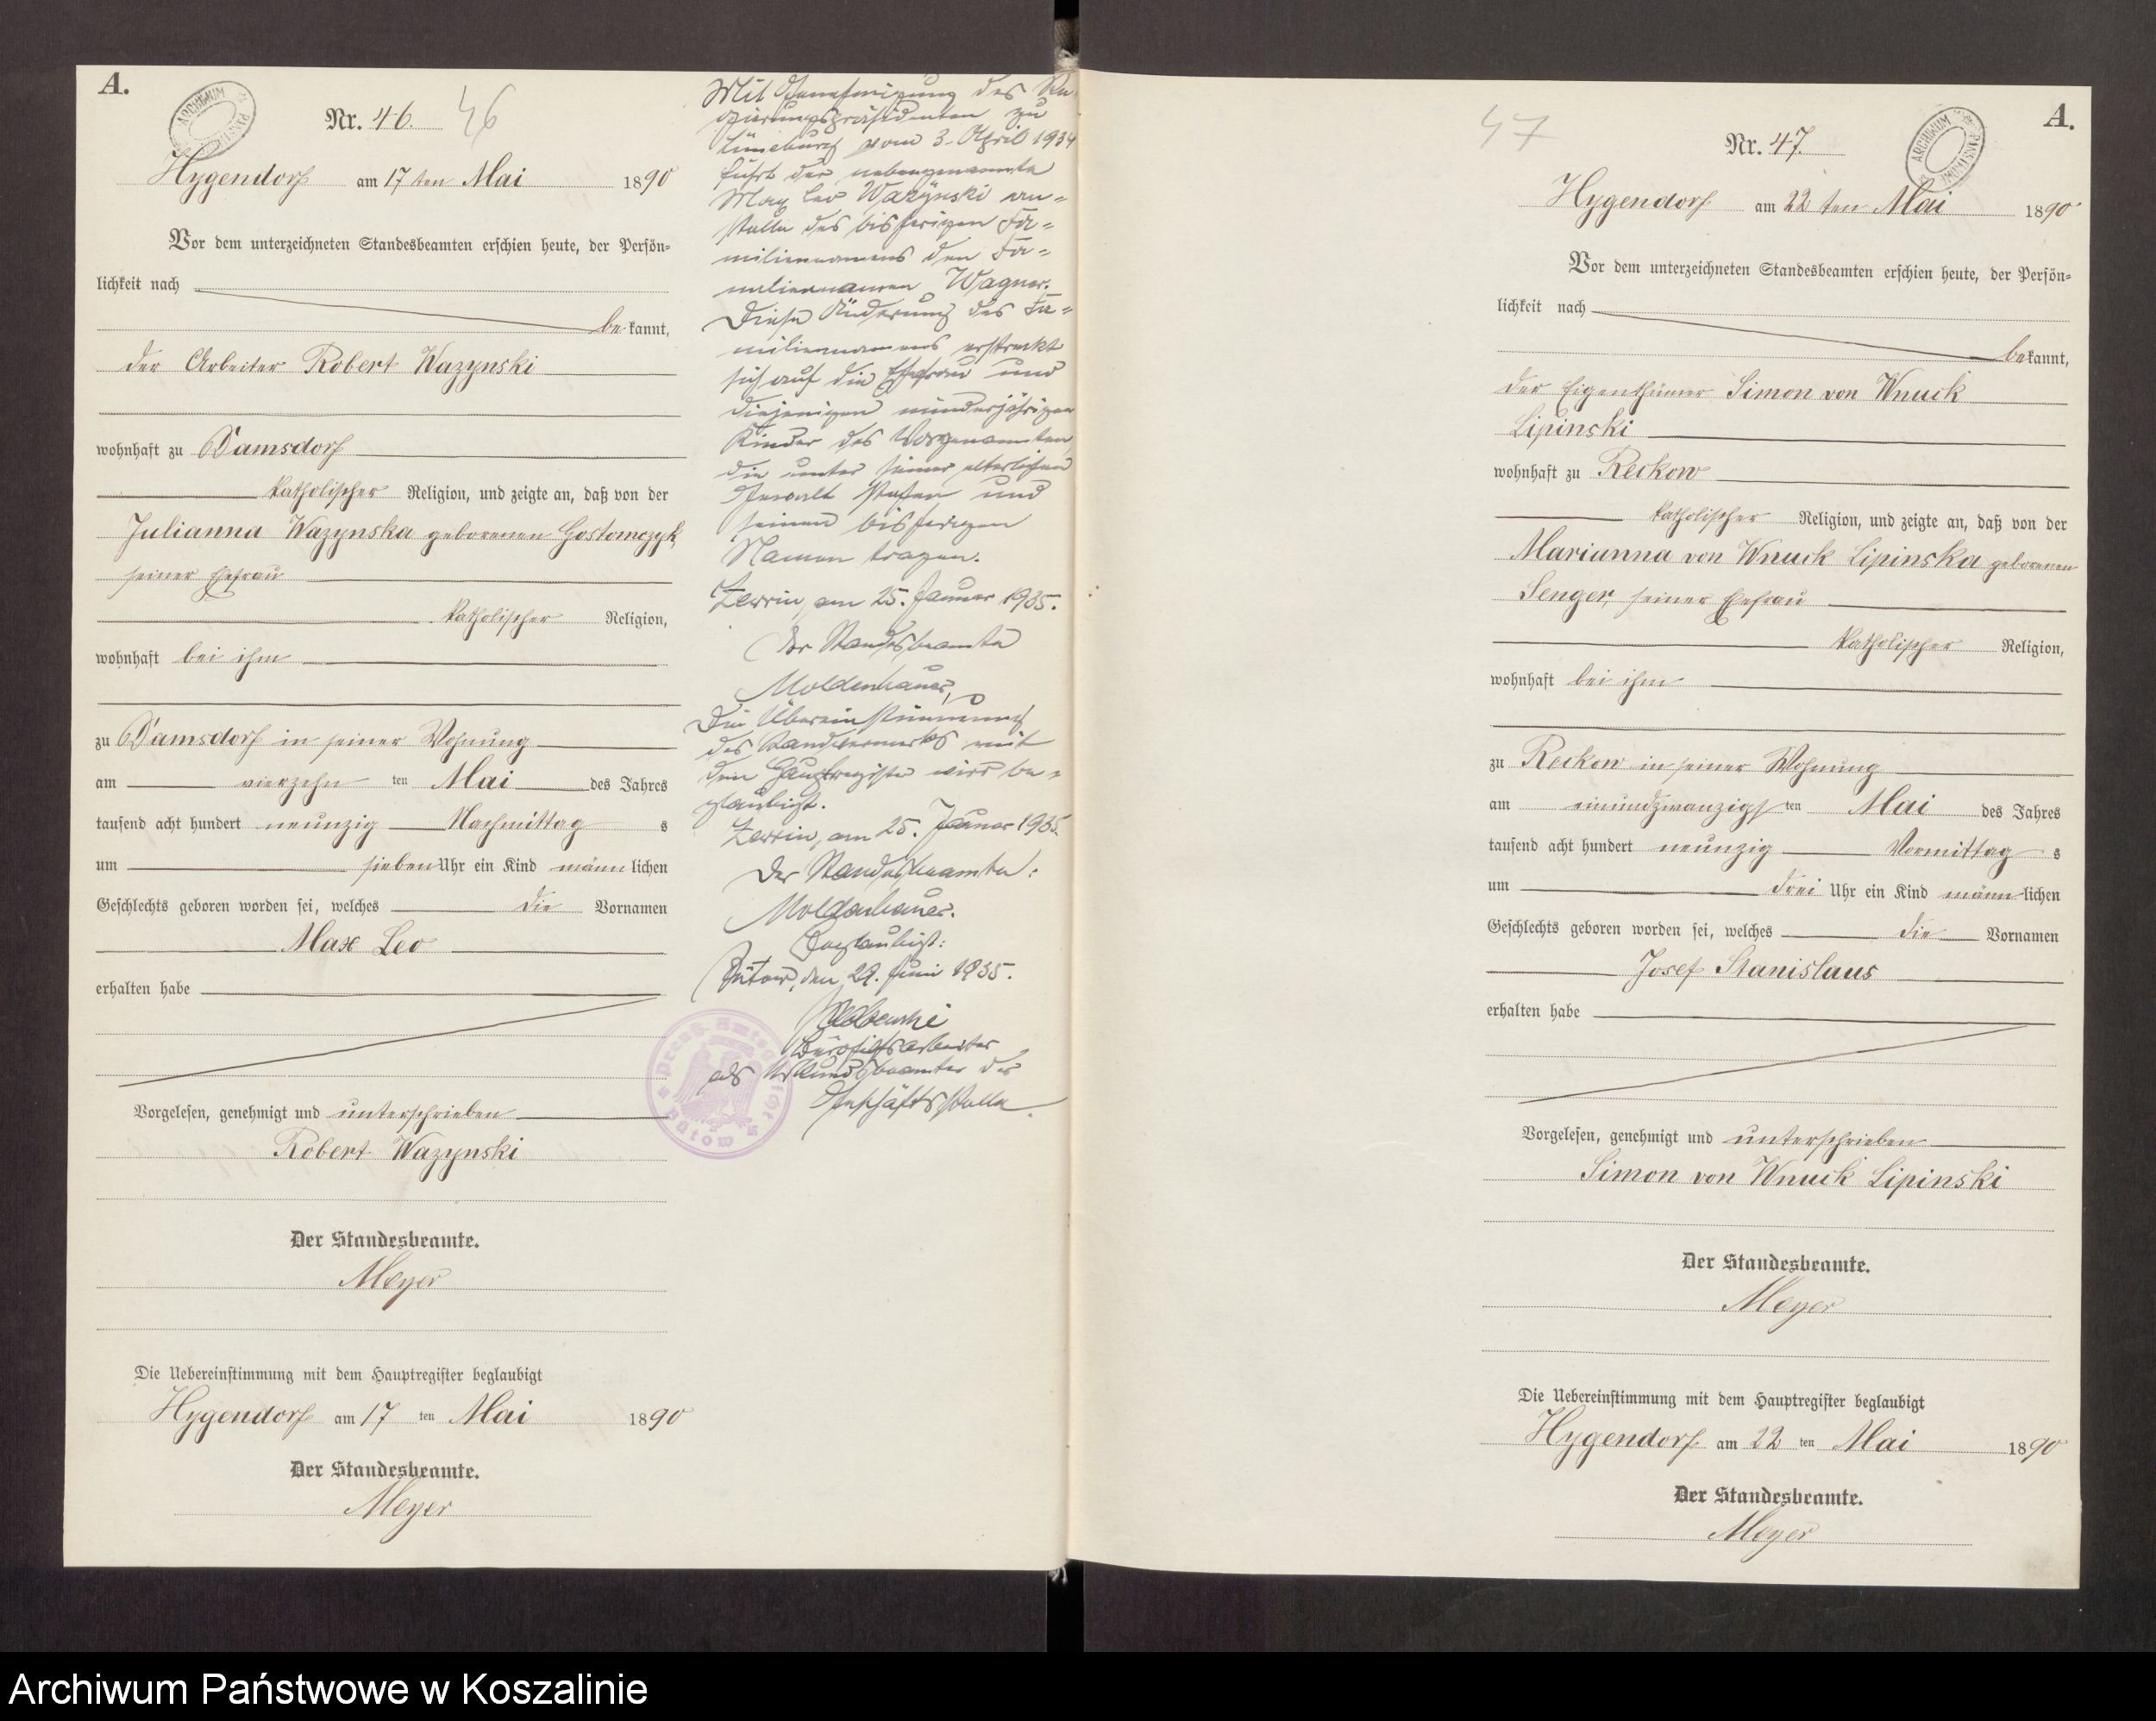 A.
ARCHIWUM
Nr. 46. 46
Hygendorf am 17 ten Mai 1890
Vor dem unterzeichneten Standesbeamten erschien heute, der Persön-
lichkeit nach
bekannt,
der Arbeiter Robert Wazynski
wohnhaft zu Damsdorf
katholischer Religion, und zeigte an, daß von der
Julianna Wazynska geborenen Gostomczyk,
seiner Ehefrau
katholischer Religion,
wohnhaft bei ihm
zu Damsdorf in seiner Wohnung
am vierzehn ten Mai des Jahres
tausend acht hundert neunzig Nachmittag s
um sieben Uhr ein Kind männlichen
Geschlechts geboren worden sei, welches die Vornamen
Max Leo
erhalten habe
Vorgelesen, genehmigt und unterschrieben
Robert Wazynski
Der Standesbeamte.
Meyer
Die Uebereinstimmung mit dem Hauptregister beglaubigt
Hygendorf am 17 ten Mai 1890
Der Standesbeamte.
Meyer
Mit Genehmigung des Re-
gierungspräsidenten zu
Lüneburg vom 3. April 1934
führt der nebengenannte
Max Leo Wazynski an-
stelle des bisherigen Fa-
miliennamens den Fa-
miliennamen Wagner.
Diese Änderung des Fa-
miliennamens erstreckt
sich auf die Ehefrau und
diejenigen minderjährigen
Kinder des Vorgenannten,
die unter seiner elterlichen
Gewalt stehen und
seinen bisherigen
Namen tragen.
Zerrin, am 25. Januar 1935.
Der Standesbeamte
Moldenhauer
Die Übereinstimmung
des Randvermerks mit
dem Hauptregister wird be-
glaubigt.
Zerrin, am 25. Januar 1935.
Der Standesbeamte:
Moldenhauer.
Beglaubigt:
Bütow, den 29. Juni 1935.
Bürohilfsarbeiter
als Urkundsbeamter der
Geschäftsstelle.
Preuß. Amtsgericht Bütow
A.
ARCHIWUM
47
Nr. 47.
Hygendorf am 22 ten Mai 1890
Vor dem unterzeichneten Standesbeamten erschien heute, der Persön-
lichkeit nach
bekannt,
der Eigenthümer Simon von Wnuck
Lipinski
wohnhaft zu Reckow
katholischer Religion, und zeigte an, daß von der
Marianna von Wnuck Lipinska geborenen
Senger, seiner Ehefrau
katholischer Religion,
wohnhaft bei ihm
zu Reckow in seiner Wohnung
am einundzwanzigsten Mai des Jahres
tausend acht hundert neunzig Vormittag s
um drei Uhr ein Kind männlichen
Geschlechts geboren worden sei, welches die Vornamen
Josef Stanislaus
erhalten habe
Vorgelesen, genehmigt und unterschrieben
Simon von Wnuck Lipinski
Der Standesbeamte.
Meyer
Die Uebereinstimmung mit dem Hauptregister beglaubigt
Hygendorf am 22 ten Mai 1890
Der Standesbeamte.
Meyer
Archiwum Państwowe w Koszalinie